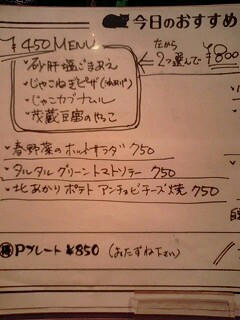 今日のおすすめ
¥450 MENU
・砂肝塩ごまあえ
・じゃこねぎピザ
・じゃこカプナムル
・茂蔵豆腐のやっこ
だから
2つ選んで ¥800
・春野菜のホットサラダ 750
・タルタルグリーントマトソテー 750
・北あかりポテトアンチョビチーズ焼 750
Pプレート ¥850 (おたずね下さい)